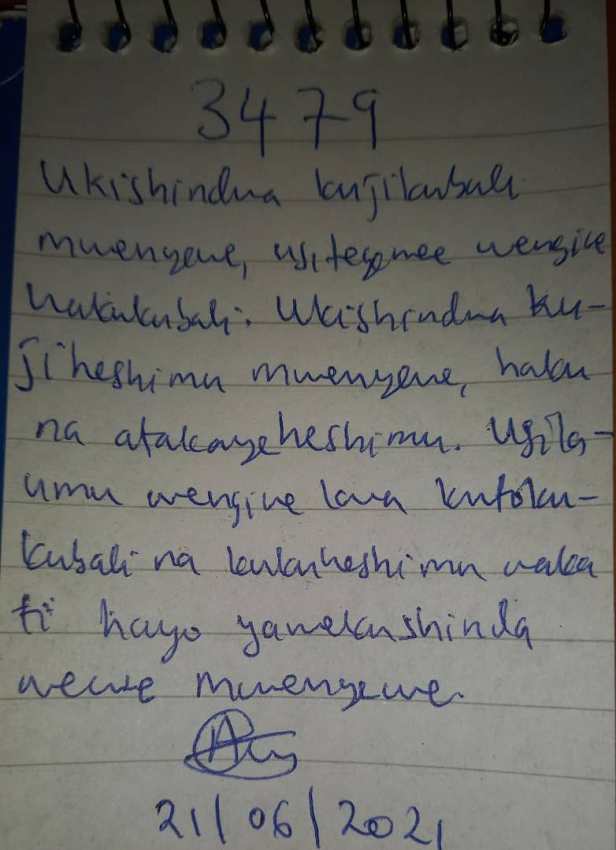 3479
Ukishindwa kujikubali
mwenyewe, usitegemee wengine
watakukubali. Ukishindwa ku-
jiheshimu mwenyewe, haku
na atakayeheshimu. Usila-
umu wengine kwa kutoku-
kubali na kukuheshimu waka
ti hayo yamekushinda
wewe mwenyewe.
21/06/2021